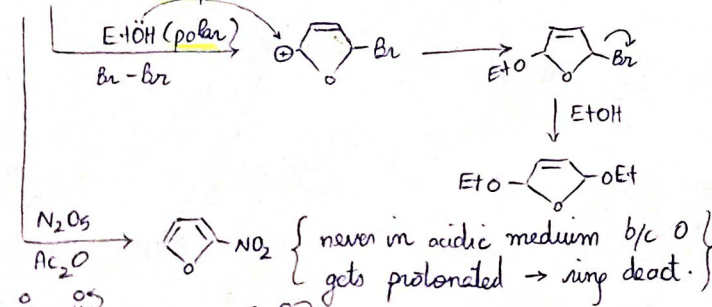 EtÖH (polar)
Br - Br
⊕
Br
O
EtO
Br
O
EtOH
EtO
OEt
O
N2O5
Ac2O
NO2
O
{ never in acidic medium b/c O }
{ gets protonated → ring deact. }